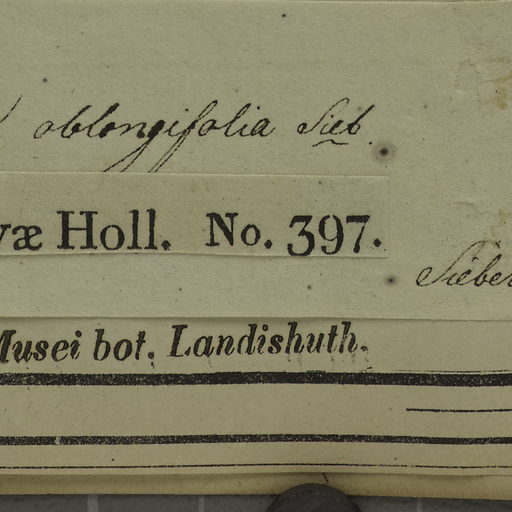 oblongifolia Sieb.
væ Holl. No. 397.
Sieber
Musei bot. Landishuth.